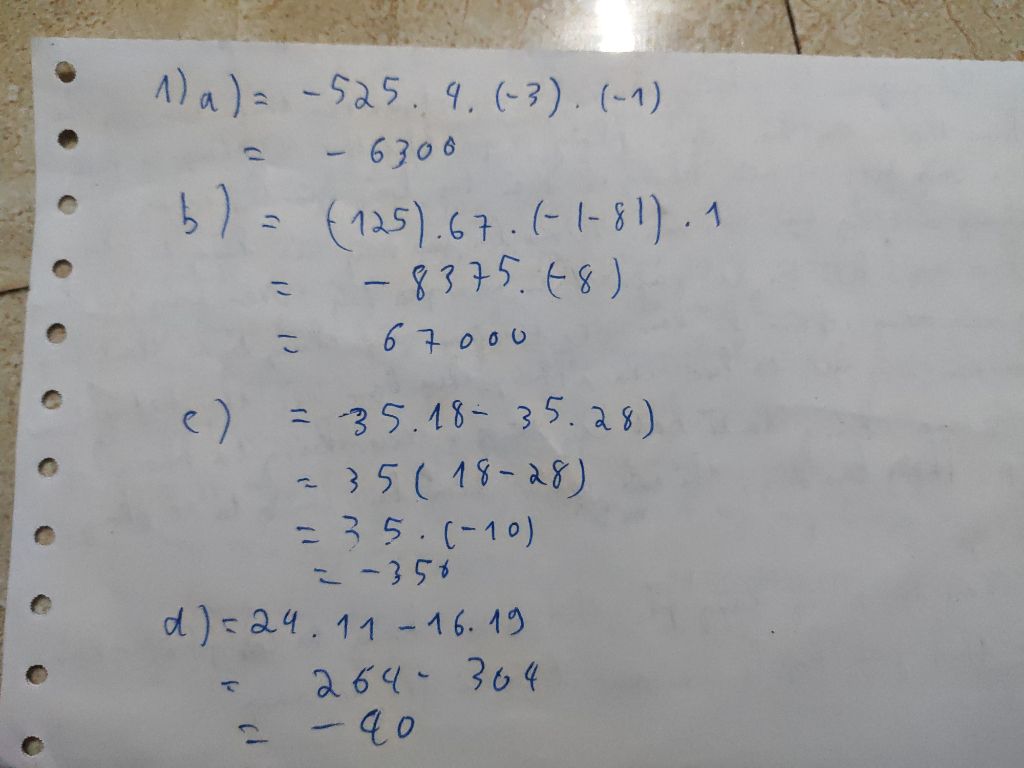 1) a) = -525. 4. (-3). (-1)
= - 6300
b) = (-125). 67. (-|-8|). 1
= - 8375. (-8)
= 67000
c) = 35.18 - 35.28)
= 35 ( 18 - 28)
= 35. (-10)
= -350
d) = 24. 11 - 16. 19
= 264 - 304
= - 40